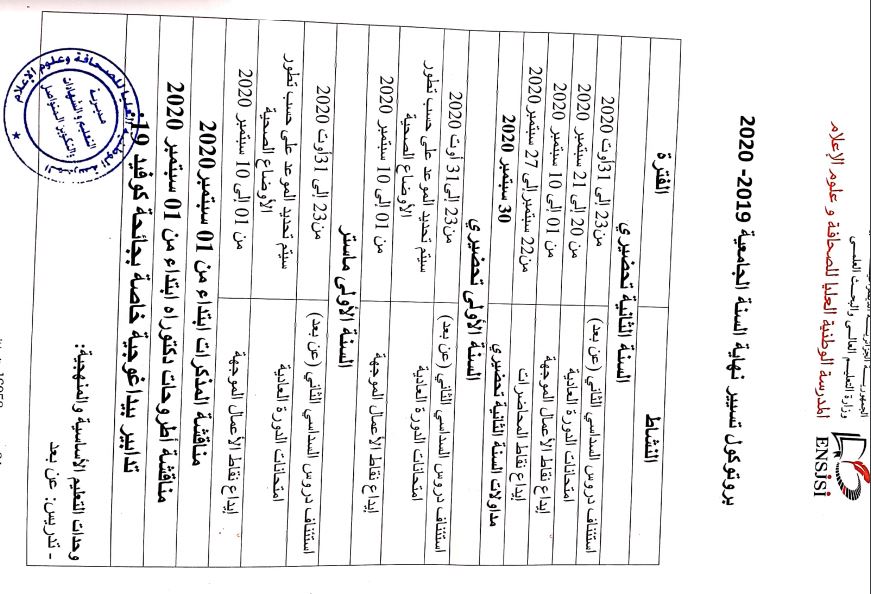 وزارة التعليم العالي والبحث العلمي
المدرسة الوطنية العليا للصحافة و علوم الإعلام
ENSJSI
بروتوكول تسيير نهاية السنة الجامعية 2019- 2020
النشاط الفترة
السنة الثانية تحضيري
استئناف دروس السداسي الثاني (عن بعد) من23 إلى 31أوت 2020
امتحانات الدورة العادية من 20 إلى 21 سبتمبر 2020
إيداع نقاط الأعمال الموجهة من 01 إلى 10 سبتمبر 2020
إيداع نقاط المحاضرات من22 سبتمبر إلى 27 سبتمبر2020
مداولات السنة الثانية تحضيري 30 سبتمبر 2020
السنة الأولى تحضيري
استئناف دروس السداسي الثاني (عن بعد) من23 إلى31 أوت 2020
امتحانات الدورة العادية سيتم تحديد الموعد على حسب تطور
الأوضاع الصحية
إيداع نقاط الأعمال الموجهة من 01 إلى 10 سبتمبر 2020
السنة الأولى ماستر
استئناف دروس السداسي الثاني (عن بعد) من23 إلى 31أوت 2020
امتحانات الدورة العادية سيتم تحديد الموعد على حسب تطور
الأوضاع الصحية
إيداع نقاط الأعمال الموجهة من 01 إلى 10 سبتمبر 2020
مناقشة المذكرات ابتداء من 01 سبتمبر2020
مناقشة أطروحات دكتوراه ابتداء من 01 سبتمبر 2020
تدابير بيداغوجية خاصة بجائحة كوفيد 19:
وحدات التعليم الأساسية والمنهجية:
- تدريس: عن بعد
المدرسة الوطنية العليا للصحافة وعلوم الإعلام
مديرية
التعليم والشهادات
والتكوين المتواصل